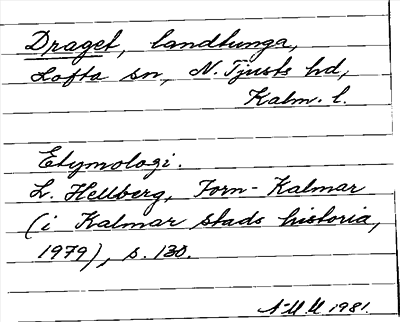 Draget, landtunga,
Lofta sn, N. Tjusts hd,
Kalm. l.
Etymologi.
L. Hellberg, Forn-Kalmar
(i Kalmar stads historia,
1979), s. 130.
1981.